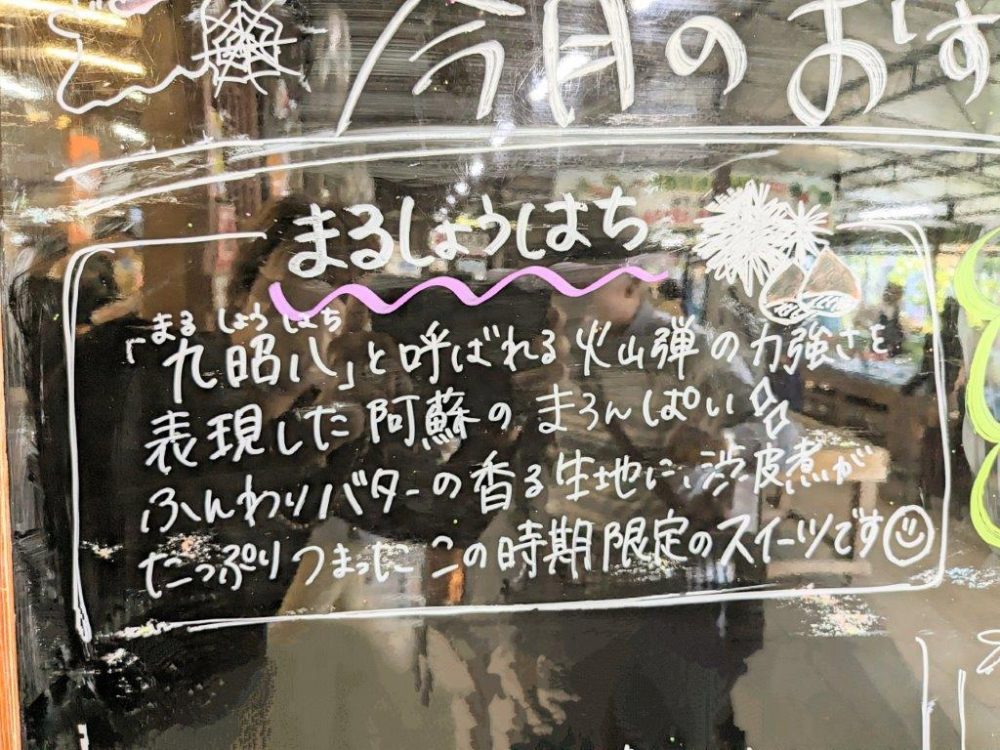 今月のおす
まるしょうはち
まる しょう はち
「九昭八」と呼ばれる火山弾の力強さを
表現した阿蘇のまろんぱい
ふんわりバターの香る生地に、渋皮煮が
たっぷりつまったこの時期限定のスイーツです